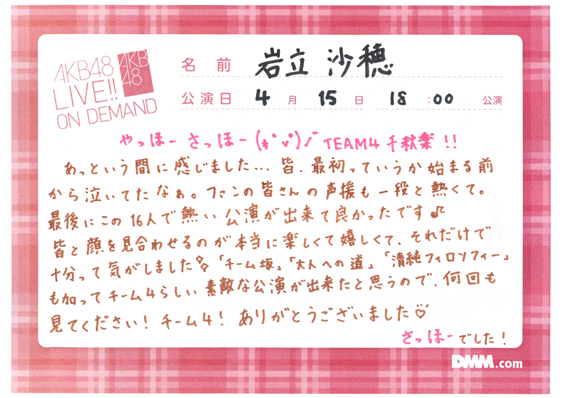 AKB48
LIVE!!
ON DEMAND
AKB
48
名 前 岩立 沙穂
公演日 4 月 15 日 18 : 00 公演
やっほー さっほー(*˙ᵕ˙)ノ TEAM4 千秋楽 !!
あっという間に感じました... 皆、最初っていうか始まる前
から泣いてたなぁ。ファンの皆さんの声援も一段と熱くて。
最後にこの16人で熱い公演が出来て良かったです♪
皆と顔を見合わせるのが本当に楽しくて嬉しくて、それだけで
十分って気がしました 「チーム坂」「大人への道」「清純フィロソフィー」
も加ってチーム4らしい素敵な公演が出来たと思うので、何回も
見てください! チーム4! ありがとうございました♡
さっほーでした!
DMM.com